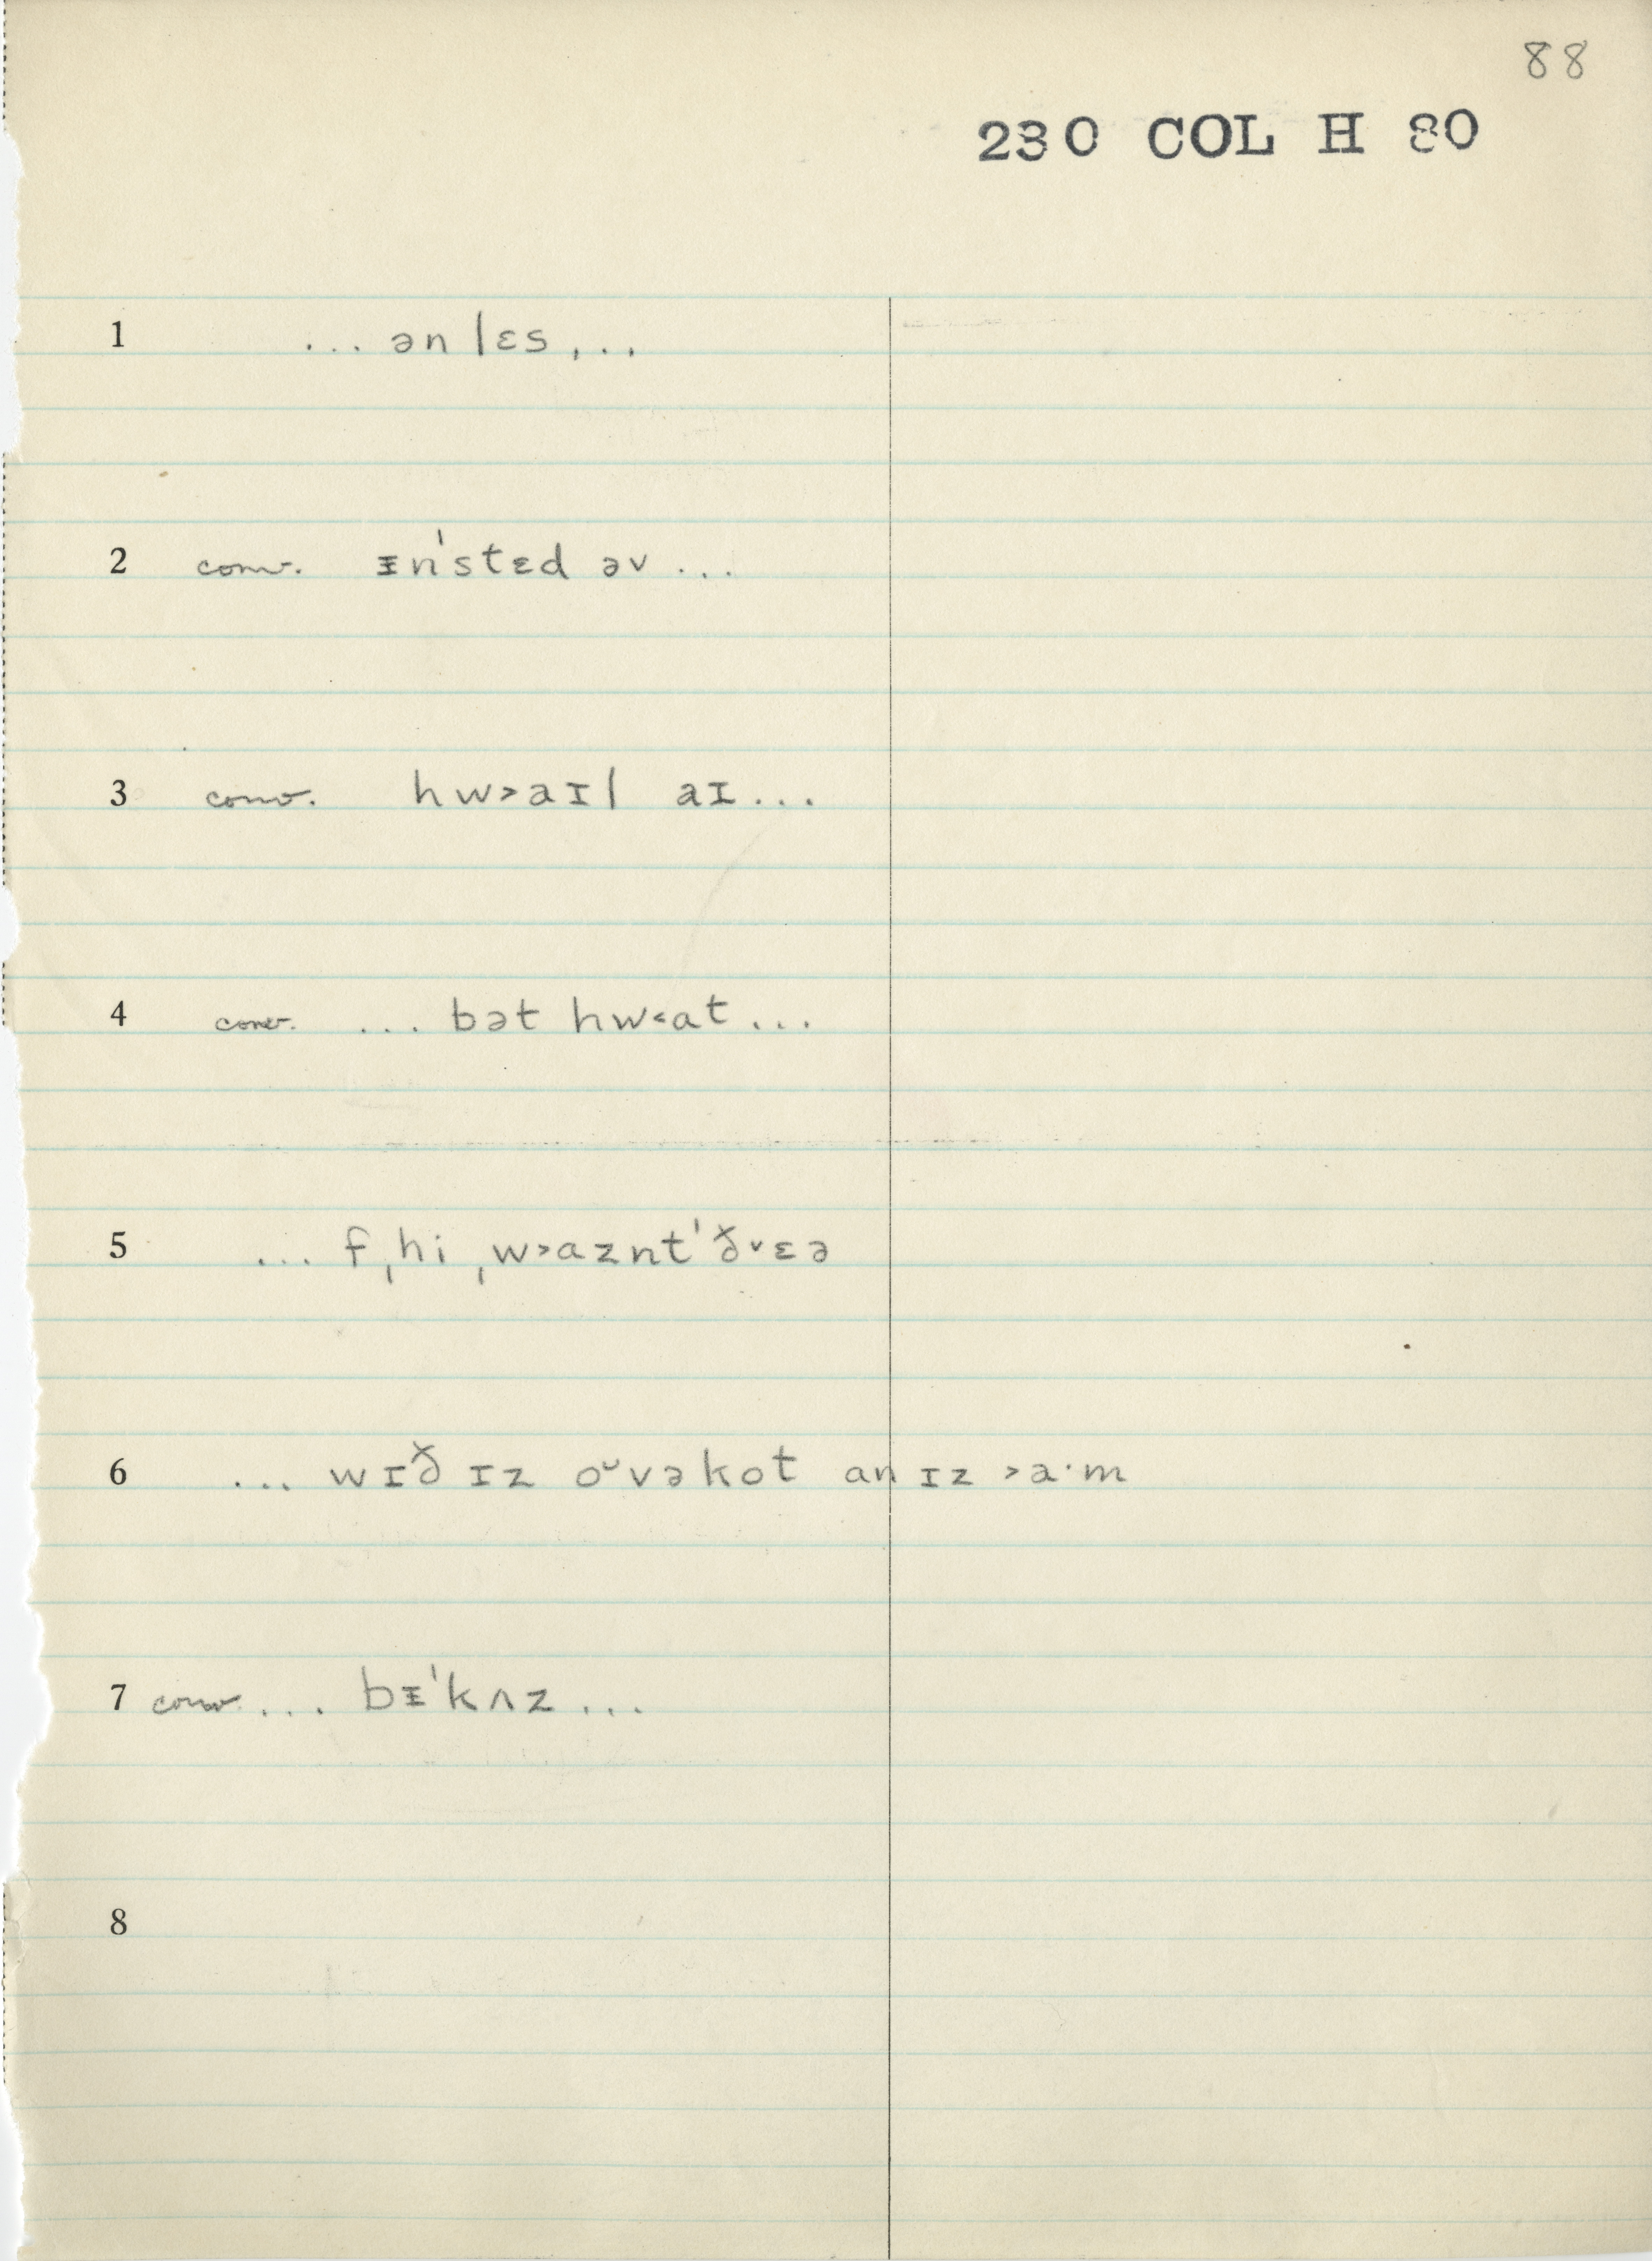 88
230 COL H 80
1 ... ən lɛs ...
2 conv. ᵻnˈstɛd əv ...
3 conv. hw˃aɪl aɪ...
4 conv. ... bət hw˂ɑt ...
5 ... f ˌhi ˌw˃ɑznt ˈð˅ɛə
6 ... wɪð ɪz oᵕvəkot an ɪz ˃a·m
7 conv. ... bᵻˈkʌz ...
8